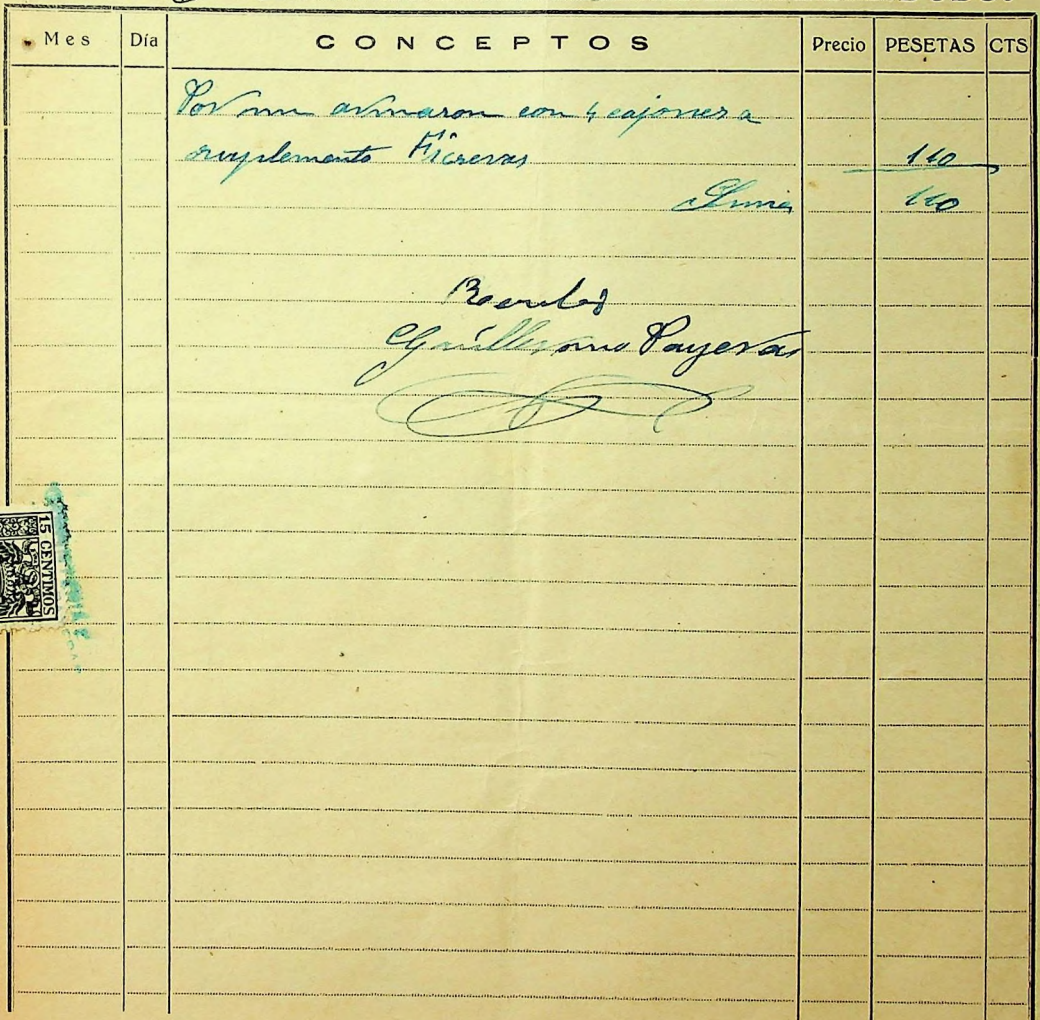 Mes Día CONCEPTOS Precio PESETAS CTS
Por un armaron con 4 cajones a
suplemento 110
Suma 110
Recibí
Guillermo Payeras
15 CENTIMOS